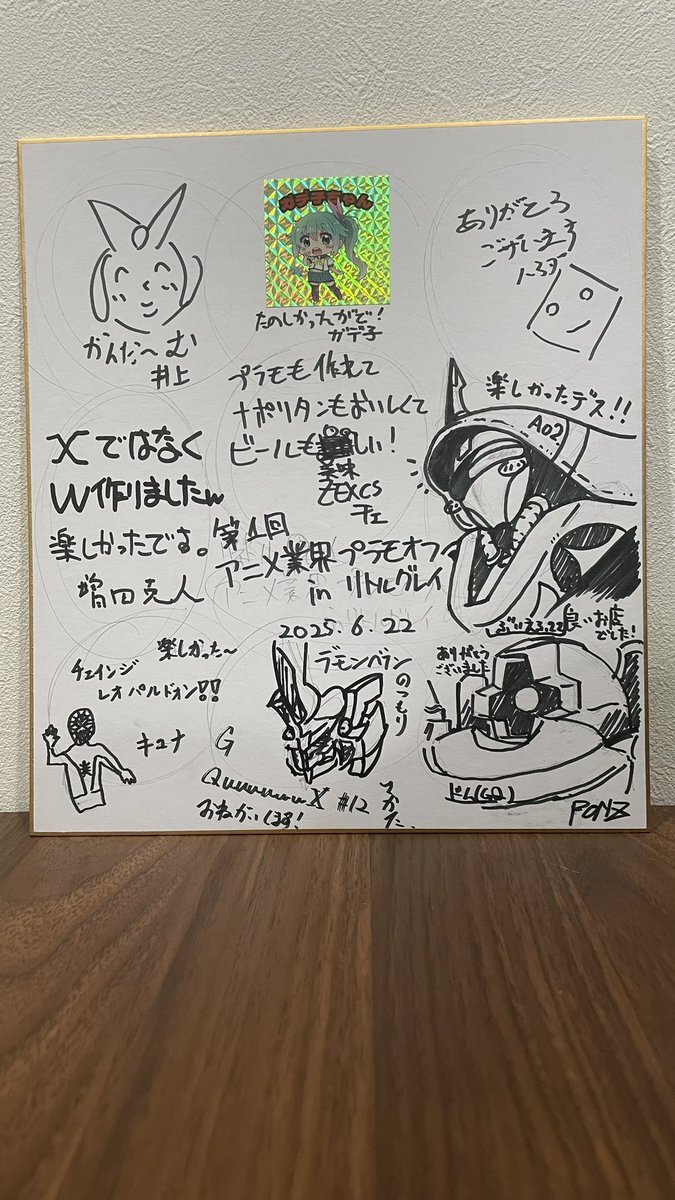 ガデ子ちゃん
たのしかったんがで!
ガデ子
ありがとう
ございます
かんだ〜む
井上
プラモも作れて
ナポリタンもおいしくて
ビールも
美味しい!
ZEXCS
チェ
楽しかったデス!!
A02
Xではなく
W作りましたw
楽しかったです。
増田克人
第1回
アニメ業界プラモオフ
in リトルグレイ
2025.6.22
ぶいえふ22
良いお店
でした!
楽しかった〜
チェインジ
レオパルドォン!!
キュナ
デモンベインのつもり
G
Quuuuuuu X #12
おねがいします!
つかた
ありがとう
ございました
ドム(GQ)
PONZ